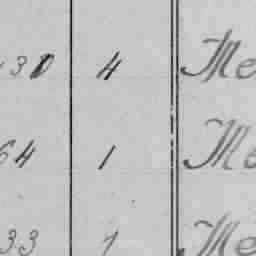 30 4 Me
64 1 Me
33 1 Me